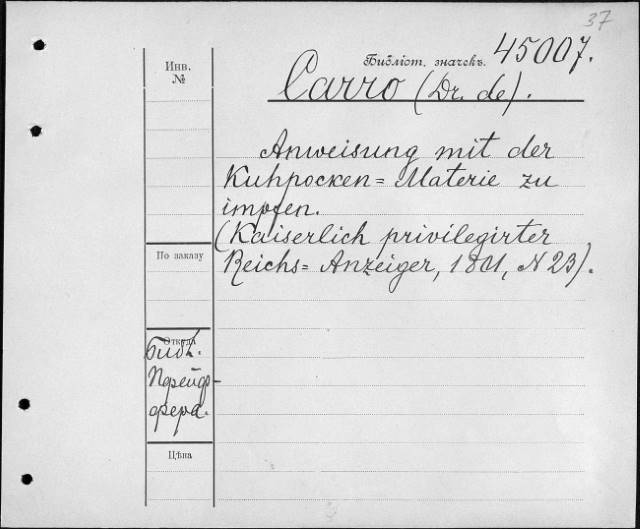 37
Библіот. значекъ. 45007.
Инв.
№
Carro (Dr. de).
Anweisung mit der
Kuhpocken=Materie zu
impfen.
(Kaiserlich privilegirter
Reichs=Anzeiger, 1801, N 23).
По заказу
Откуда
Библ.
Пфейф-
фера.
Цѣна